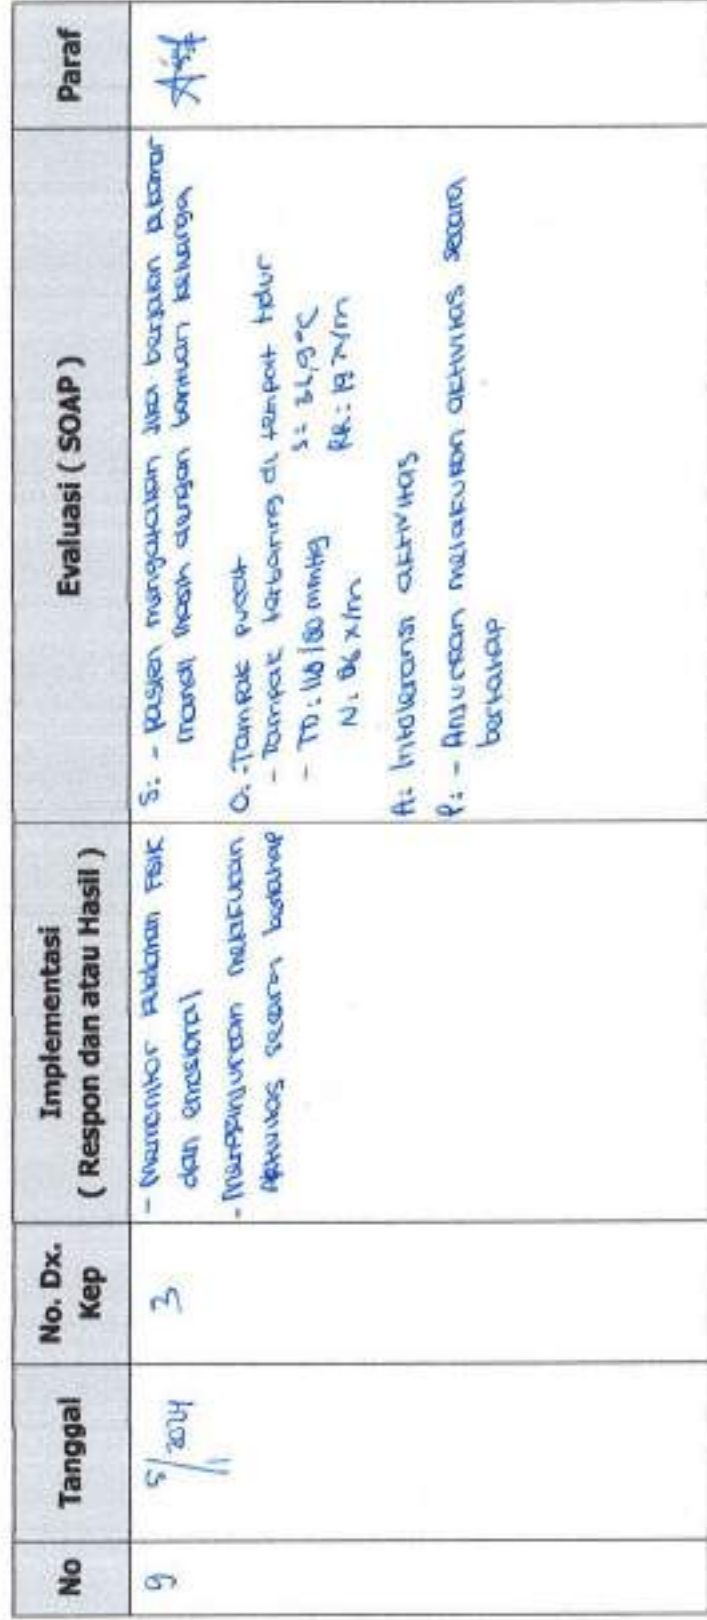 No
Tanggal
No. Dx.
Kep
Implementasi
( Respon dan atau Hasil )
Evaluasi ( SOAP )
Paraf
9
5/ 2024
3
- Memonitor kelelahan Fisik
dan emosional
- Menganjurkan melakukan
Aktivitas secara bertahap
S: - Pasien mengatakan Jika berjalan kekamar
mandi masih dengan bantuan keluarga
O: -Tampak pucat
- Tampak terbaring di tempat tidur
- TD: 118/80 mmHg S: 36,9°C
N: 86 x/m RR: 19 x/m
A: Intoleransi aktivitas
P: - Anjurkan melakukan aktivitas secara
bertahap